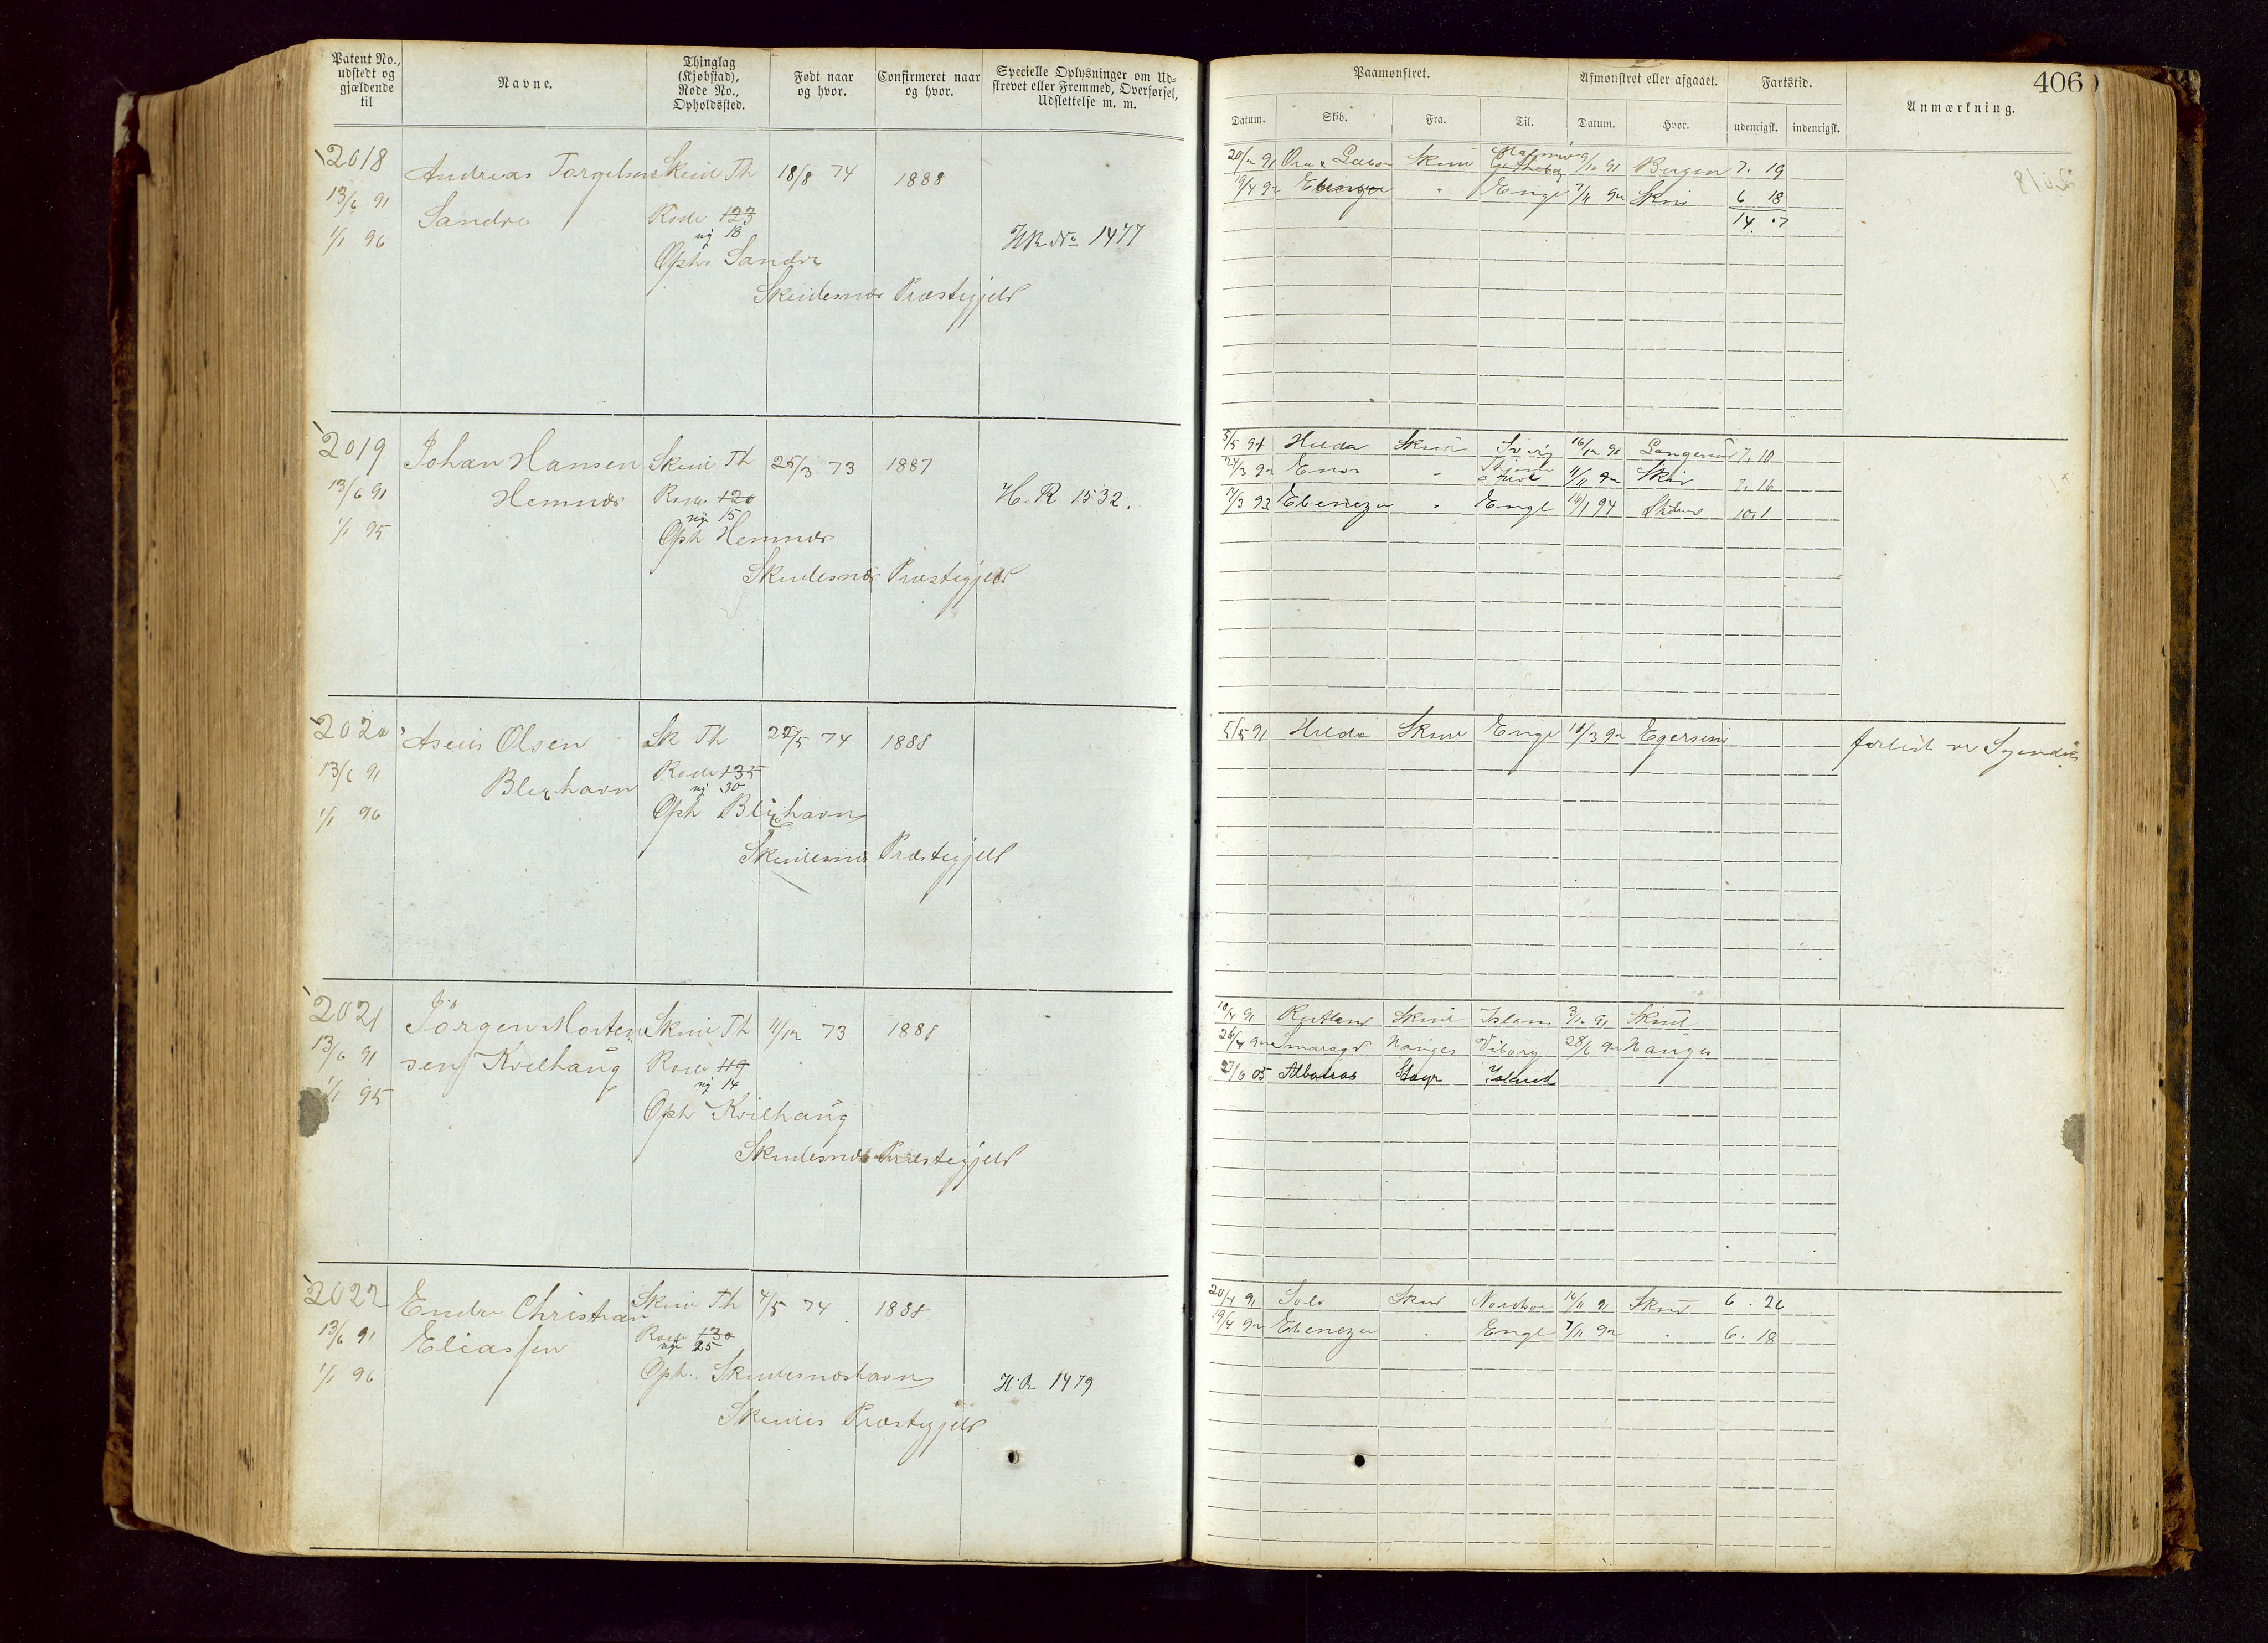 Patent No., udstedt og gjældende til
Navne.
Thinglag (Kjøbstad), Rode No., Opholdssted.
Født naar og hvor.
Confirmeret naar og hvor.
Specielle Oplysninger om Udskrevet eller Fremmed, Overførsel, Udslettelse m. m.
2018 Andreas Torgelsen Skud Th 18/8 74 1888
13/6 91 Sandve Rode 123
ny 18
1/1 96 Oph. Sandve HR No 1477
Skudesnæs Præstegjeld
2019 Johan Hansen Skud Th 25/3 73 1887
13/6 91 Hemnæs Rode 120 H. R 1532.
ny 15
1/1 95 Oph Hemnæs
Skudesnæs Præstegjeld
2020 Olsen Sk Th 27/5 74 1888
13/6 91 Blixhavn Rode 135
ny 30
1/1 96 Oph Blixhavn
Skudesnæs Præstegjeld
2021 Jörgen Morten Skud Th 11/12 73 1888
13/6 91 sen Kvilhaug Rode 119
ny 14
1/1 95 Oph Kvilhaug
Skudesnæs Præstegjeld
2022 Endre Christian Skud Th 4/5 74 1888
13/6 91 Eliassen Rode 130
ny 25
1/1 96 Oph. Skudesnæshavn H.R 1479
Skudes Præstegjeld
406
Paamønstret. Afmønstret eller afgaaet. Fartstid. Anmærkning.
Datum. Skib. Fra. Til. Datum. Hvor. udenrigsk. indenrigsk.
20/2 91 Ora & Labora Skud 9/10 91 Bergen 7. 19
19/4 92 Ebenezer " Engl 7/11 92 Skud 6 18
14. 7
5/5 91 Hilda Skud 16/12 91 Langesund 7. 10
24/3 92 Enos " 11/11 92 Skud 7. 16
7/3 93 Ebenezer " Engl 16/1 94 10. 1
5/5 91 Hilda Skud Engl 10/3 92 Egersund forlist ved
10/4 91 Skud Island 3/10 91 Skud
26/4 92 Smaragd Hauges Viborg 28/6 92 Hauges
27/6 05 Albatros Island
20/4 91 Solv Skud 16/11 91 Skud 6. 26
19/4 92 Ebenezer " Engl 7/11 92 " 6. 18